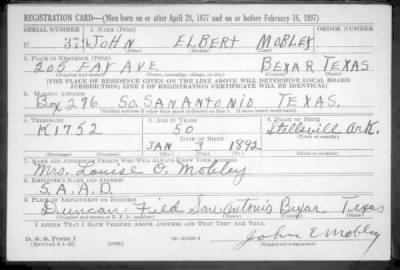 REGISTRATION CARD—(Men born on or after April 28, 1877 and on or before February 16, 1897)
SERIAL NUMBER 1. NAME (Print) ORDER NUMBER
U 379 JOHN ELBERT MOBLEY
(First) (Middle) (Last)
2. PLACE OF RESIDENCE (Print)
205 FAY AVE. BEXAR TEXAS
(Number and street) (Town, township, village, or city) (County) (State)
[THE PLACE OF RESIDENCE GIVEN ON THE LINE ABOVE WILL DETERMINE LOCAL BOARD
JURISDICTION; LINE 2 OF REGISTRATION CERTIFICATE WILL BE IDENTICAL]
3. MAILING ADDRESS
Box 296 SO. SAN ANTONIO TEXAS.
[Mailing address if other than place indicated on line 2. If same insert word same]
4. TELEPHONE 5. AGE IN YEARS 6. PLACE OF BIRTH
K1752 50 Stellsvill
DATE OF BIRTH (Town or county)
JAN 3 1892 Ark.
(Exchange) (Number) (Mo.) (Day) (Yr.) (State or country)
7. NAME AND ADDRESS OF PERSON WHO WILL ALWAYS KNOW YOUR ADDRESS
Mrs. Louise O. Mobley
8. EMPLOYER'S NAME AND ADDRESS
S.A.A.D.
9. PLACE OF EMPLOYMENT OR BUSINESS
Duncan Field San Antonio Bexar Texas
(Number and street or R. F. D. number) (Town) (County) (State)
I AFFIRM THAT I HAVE VERIFIED ABOVE ANSWERS AND THAT THEY ARE TRUE.
D. S. S. Form 1
(Revised 4-1-42) (over) John E Mobley
(Registrant's signature)